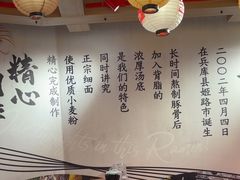 二〇〇二年四月四日
在兵库县姬路市诞生
长时间熬制豚骨后
加入背脂的
浓厚汤底
是我们的特色
同时讲究
正宗细面
使用优质小麦粉
精心完成制作
精心